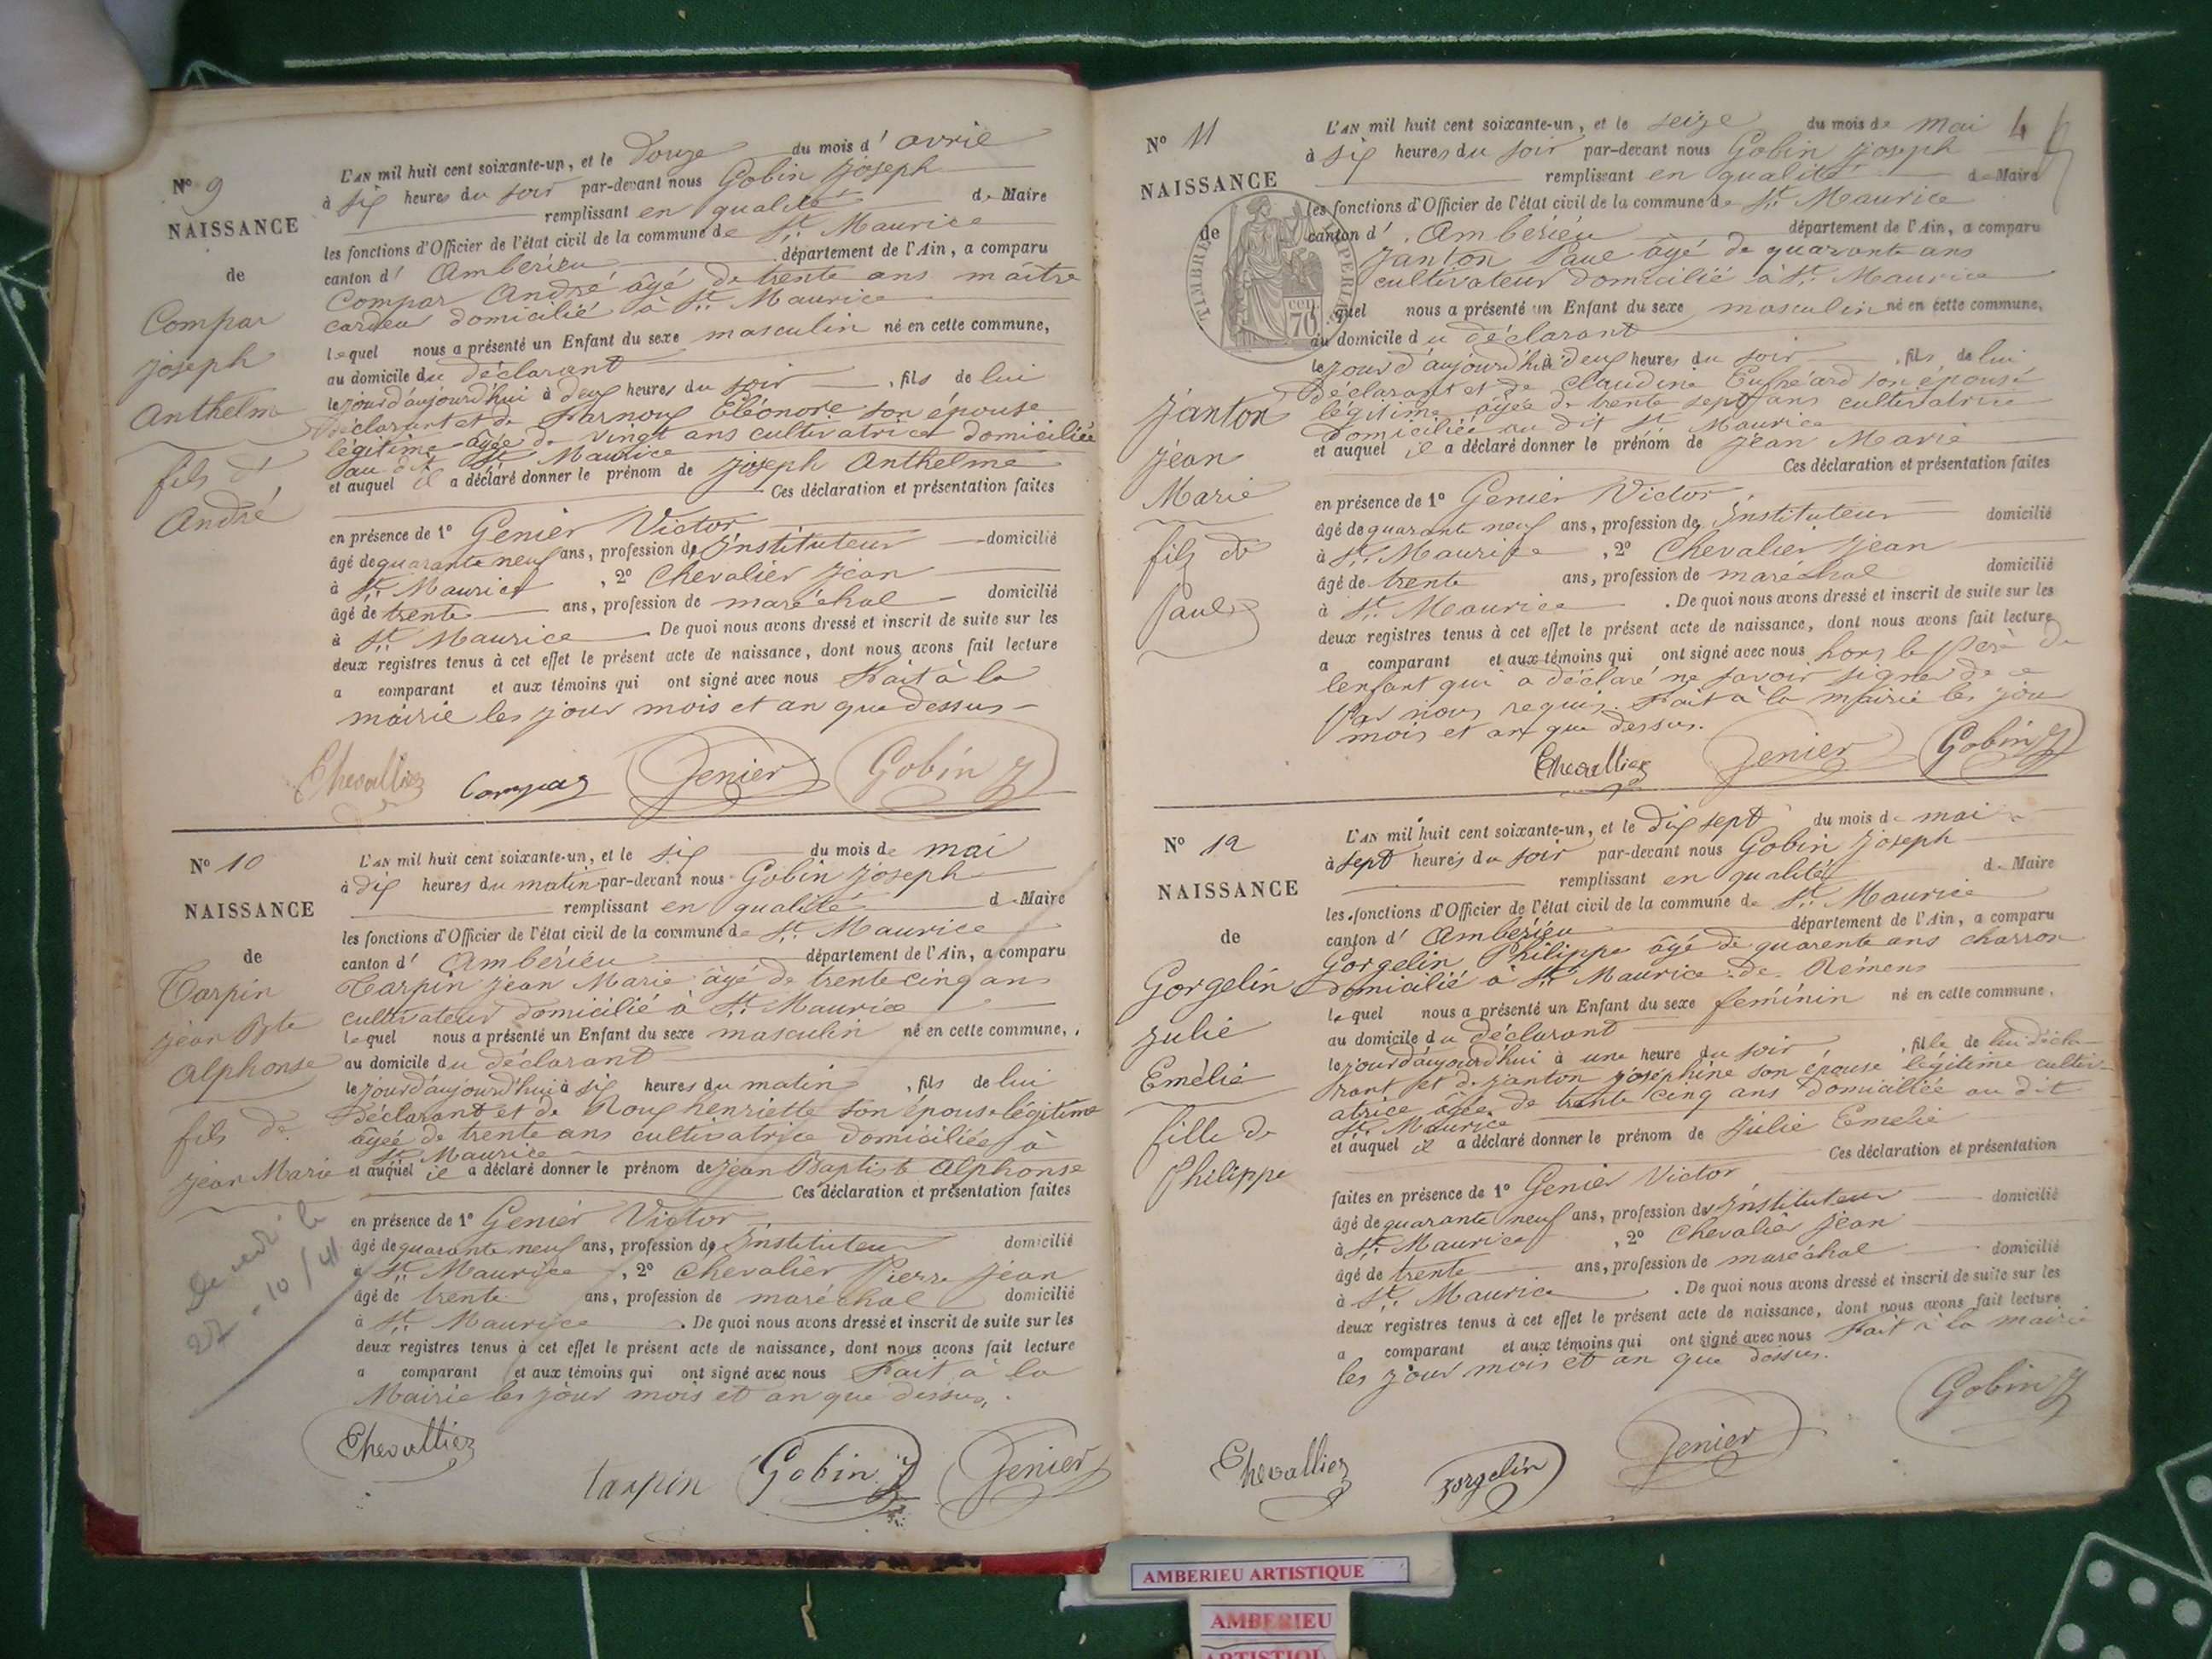 N° 9
NAISSANCE
de
Compar
joseph
Anthelme
fils d'
André
L'AN mil huit cent soixante-un, et le Douze du mois d' avril
à six heures du soir par-devant nous Gobin joseph
remplissant en qualité de Maire
les fonctions d'Officier de l'état civil de la commune de St. Maurice
canton d' Ambérieu département de l'Ain, a comparu
Compar André âgé de trente ans maître
cardeur domicilié à St. Maurice
lequel nous a présenté un Enfant du sexe masculin né en cette commune,
au domicile du déclarant
le jour d'aujourd'hui à deux heures du soir, fils de lui
Déclarant et de Farnoux Eléonore son épouse
légitime âgée de vingt ans cultivatrice domiciliée
au dit St Maurice
et auquel il a déclaré donner le prénom de joseph Anthelme
Ces déclaration et présentation faites
en présence de 1° Genier Victor
âgé de quarante neuf ans, profession de Instituteur domicilié
à St. Maurice, 2° Chevalier jean
âgé de trente ans, profession de maréchal domicilié
à St. Maurice. De quoi nous avons dressé et inscrit de suite sur les
deux registres tenus à cet effet le présent acte de naissance, dont nous avons fait lecture
a comparant et aux témoins qui ont signé avec nous Fait à la
mairie les jour mois et an que dessus
Chevallier Compar Genier Gobin J
N° 10
NAISSANCE
de
Tarpin
jean Bte
Alphonse
fils de
jean Marie
L'AN mil huit cent soixante-un, et le six du mois de mai
à dix heures du matin par-devant nous Gobin joseph
remplissant en qualité de Maire
les fonctions d'Officier de l'état civil de la commune de St. Maurice
canton d' Ambérieu département de l'Ain, a comparu
Tarpin jean Marie âgé de trente cinq ans
cultivateur domicilié à St. Maurice
lequel nous a présenté un Enfant du sexe masculin né en cette commune,
au domicile du déclarant
le jour d'aujourd'hui à six heures du matin, fils de lui
Déclarant et de Roux henriette son épouse légitime
âgée de trente ans cultivatrice domiciliée à
St Maurice
et auquel il a déclaré donner le prénom de jean Baptiste Alphonse
Ces déclaration et présentation faites
en présence de 1° Genier Victor
âgé de quarante neuf ans, profession de Instituteur domicilié
à St. Maurice, 2° Chevalier Pierre jean
âgé de trente ans, profession de maréchal domicilié
à St. Maurice. De quoi nous avons dressé et inscrit de suite sur les
deux registres tenus à cet effet le présent acte de naissance, dont nous avons fait lecture
a comparant et aux témoins qui ont signé avec nous Fait à la
Mairie les jour mois et an que dessus.
Chevallier tarpin Gobin J Genier
N° 11
NAISSANCE
de
TIMBRE IMPERIAL
70 cen.
janton
jean
Marie
fils de
Paul
L'AN mil huit cent soixante-un, et le seize du mois de mai 4
à six heures du soir par-devant nous Gobin joseph
remplissant en qualité de Maire
les fonctions d'Officier de l'état civil de la commune de St. Maurice
canton d' Ambérieu département de l'Ain, a comparu
janton Paul âgé de quarante ans
cultivateur domicilié à St. Maurice
lequel nous a présenté un Enfant du sexe masculin né en cette commune,
au domicile du déclarant
le jour d'aujourd'hui à deux heures du soir, fils de lui
Déclarant et de Claudine son épouse
légitime âgée de trente sept ans cultivatrice
Domiciliée au dit St Maurice
et auquel il a déclaré donner le prénom de jean Marie
Ces déclaration et présentation faites
en présence de 1° Genier Victor
âgé de quarante neuf ans, profession de Instituteur domicilié
à St. Maurice, 2° Chevalier jean
âgé de trente ans, profession de maréchal domicilié
à St. Maurice. De quoi nous avons dressé et inscrit de suite sur les
deux registres tenus à cet effet le présent acte de naissance, dont nous avons fait lecture
a comparant et aux témoins qui ont signé avec nous hors le Père de
lenfant qui a déclaré ne savoir signer de ce
Par nous requis. Fait à la mairie les jour
mois et an que dessus.
Chevallier Genier Gobin J
N° 12
NAISSANCE
de
Gorgelin
julie
Emélie
fille de
Philippe
L'AN mil huit cent soixante-un, et le dix sept du mois de mai
à sept heures du soir par-devant nous Gobin joseph
remplissant en qualité de Maire
les fonctions d'Officier de l'état civil de la commune de St. Maurice
canton d' Ambérieu département de l'Ain, a comparu
Gorgelin Philippe âgé de quarente ans charron
domicilié à St. Maurice de Rémens
lequel nous a présenté un Enfant du sexe féminin né en cette commune,
au domicile du déclarant
le jour d'aujourd'hui à une heure du soir, fille de lui décla-
rant et de janton joséphine son épouse légitime cultiv-
atrice âgée de trente cinq ans domiciliée au dit
St. Maurice
et auquel il a déclaré donner le prénom de julie Emelie
Ces déclaration et présentation
faites en présence de 1° Genier Victor
âgé de quarante neuf ans, profession de Instituteur domicilié
à St. Maurice, 2° Chevalier jean
âgé de trente ans, profession de maréchal domicilié
à St. Maurice. De quoi nous avons dressé et inscrit de suite sur les
deux registres tenus à cet effet le présent acte de naissance, dont nous avons fait lecture
a comparant et aux témoins qui ont signé avec nous Fait à la mairie
les jour mois et an que dessus.
Chevallier gorgelin Genier Gobin J
AMBERIEU ARTISTIQUE
AMBERIEU
ARTISTIQU